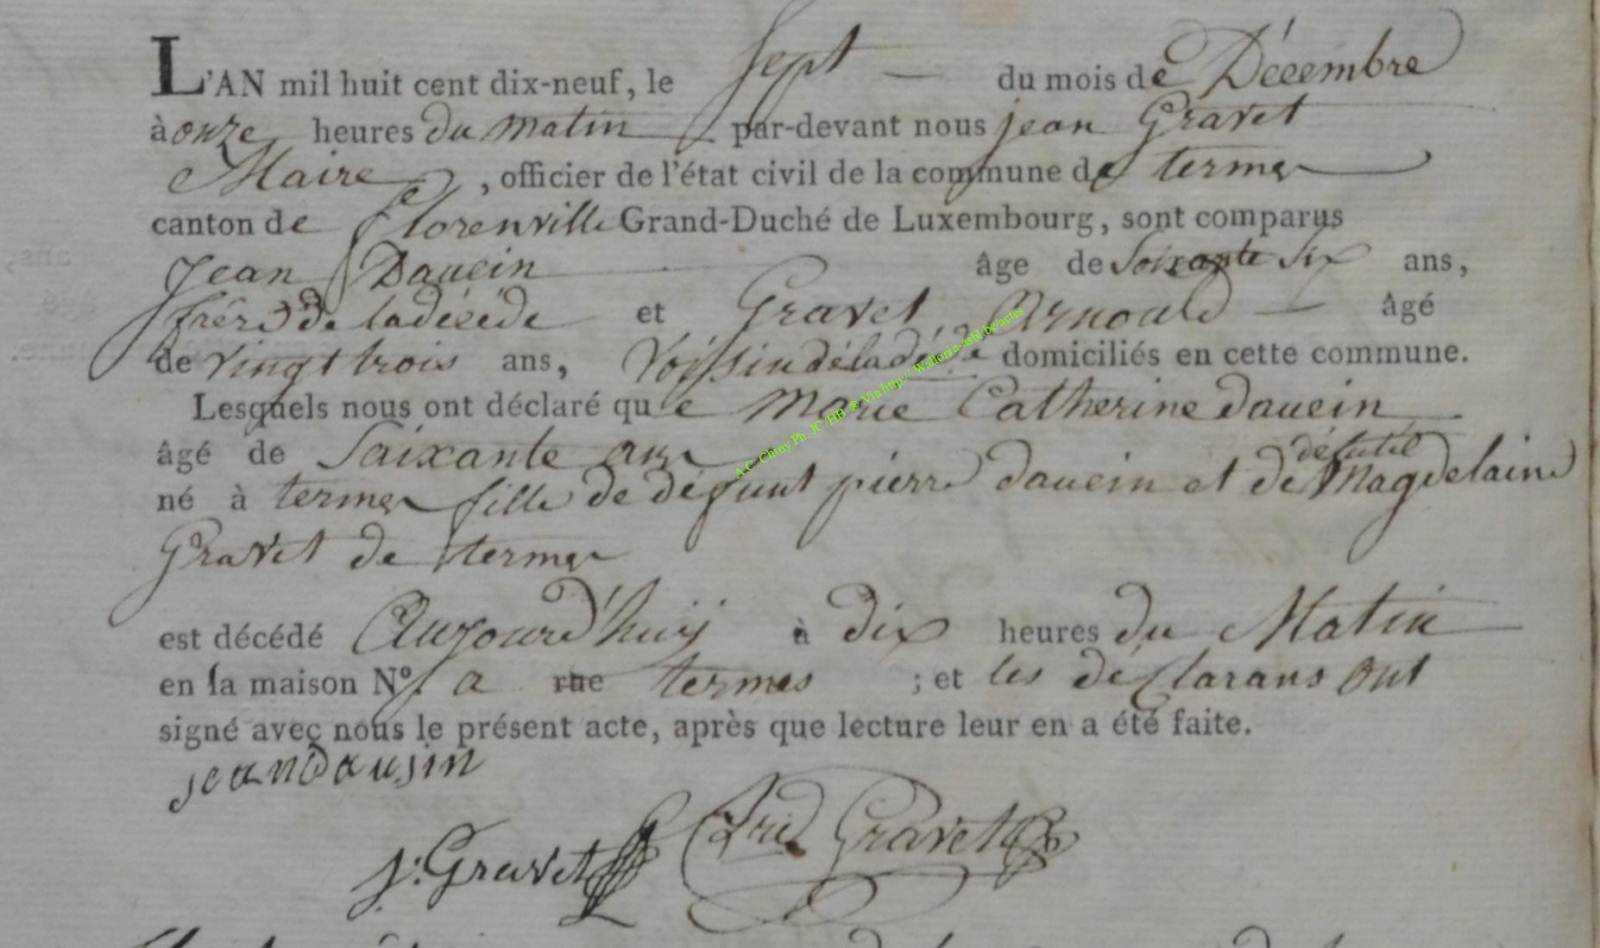 L'AN mil huit cent dix-neuf, le sept du mois de Décembre
à onze heures du matin par-devant nous jean Gravet
Maire, officier de l'état civil de la commune de termes
canton de florenville Grand-Duché de Luxembourg, sont comparus
Jean Dauein âge de Soixante Six ans,
frère de la décéde et Gravet Arnould âgé
de vingt trois ans, Voissin dé la décéde domiciliés en cette commune.
Lesquels nous ont déclaré que marie Catherine dauein
âgé de Saixante ans
né à termes fille de defunt pierre dauein et de Magdelaine
Gravet de termes
est décédé Aujourd'huij à dix heures du Matin
en la maison N°. a rue termes ; et les déClarans ont
signé avec nous le présent acte, après que lecture leur en a été faite.
jean Dausin
j: Gravet Ard Gravet
A.C. Chiny Ph. JC HB & Via http:// Wallonia-asbl.be/actes